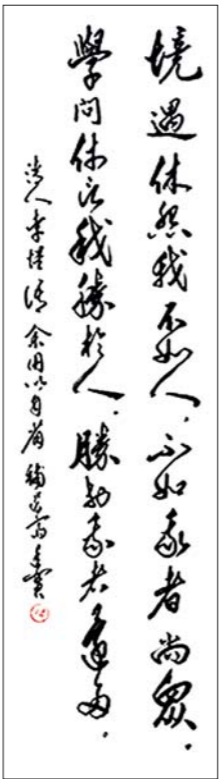 境遇休怨我不如人，不如我者尚眾。
學問休言我勝於人，勝於我者還多。
清人李惺語 余用以自省